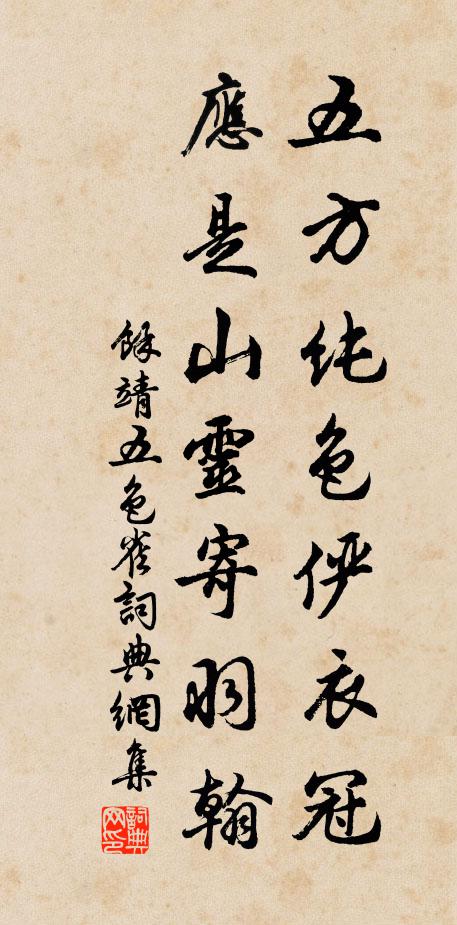 五方纯色俨衣冠
應是山靈寄羽翰
餘靖五色雀詞典網集
詞典網印